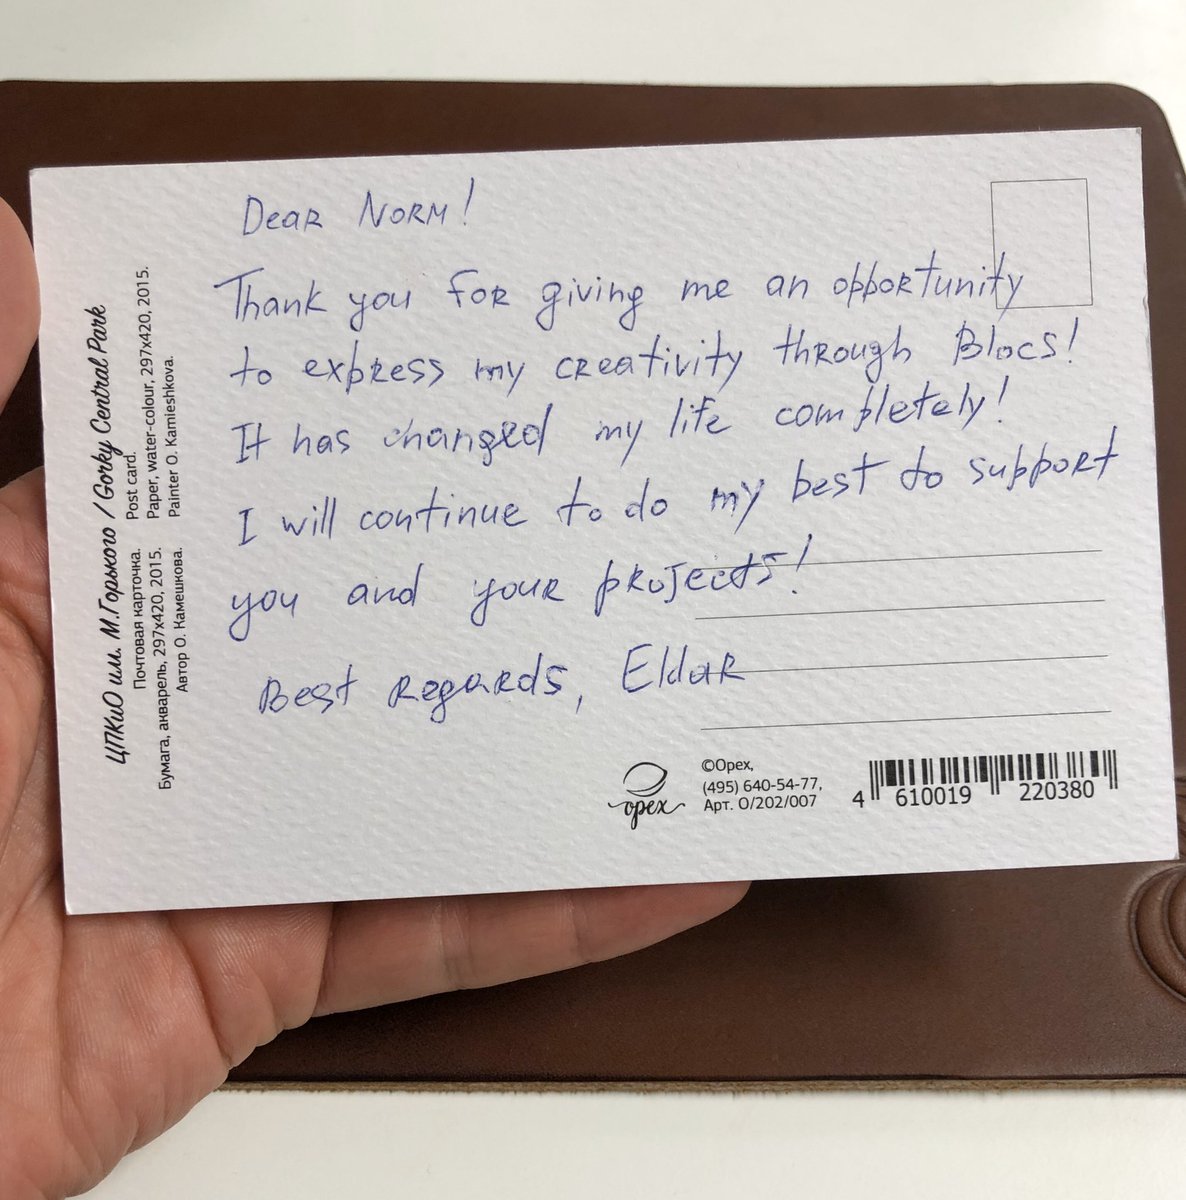 Dear Norm!
Thank you for giving me an opportunity
to express my creativity through Blocs!
It has changed my life completely!
I will continue to do my best to support
you and your projects!
Best regards, Eldar
ЦПКиО им. М.Горького / Gorky Central Park
Почтовая карточка.
Бумага, акварель, 297x420, 2015.
Автор О. Камешкова.
Post card.
Paper, water-colour, 297x420, 2015.
Painter O. Kamieshkova.
орех
©Орех,
(495) 640-54-77,
Арт. О/202/007
4 610019 220380